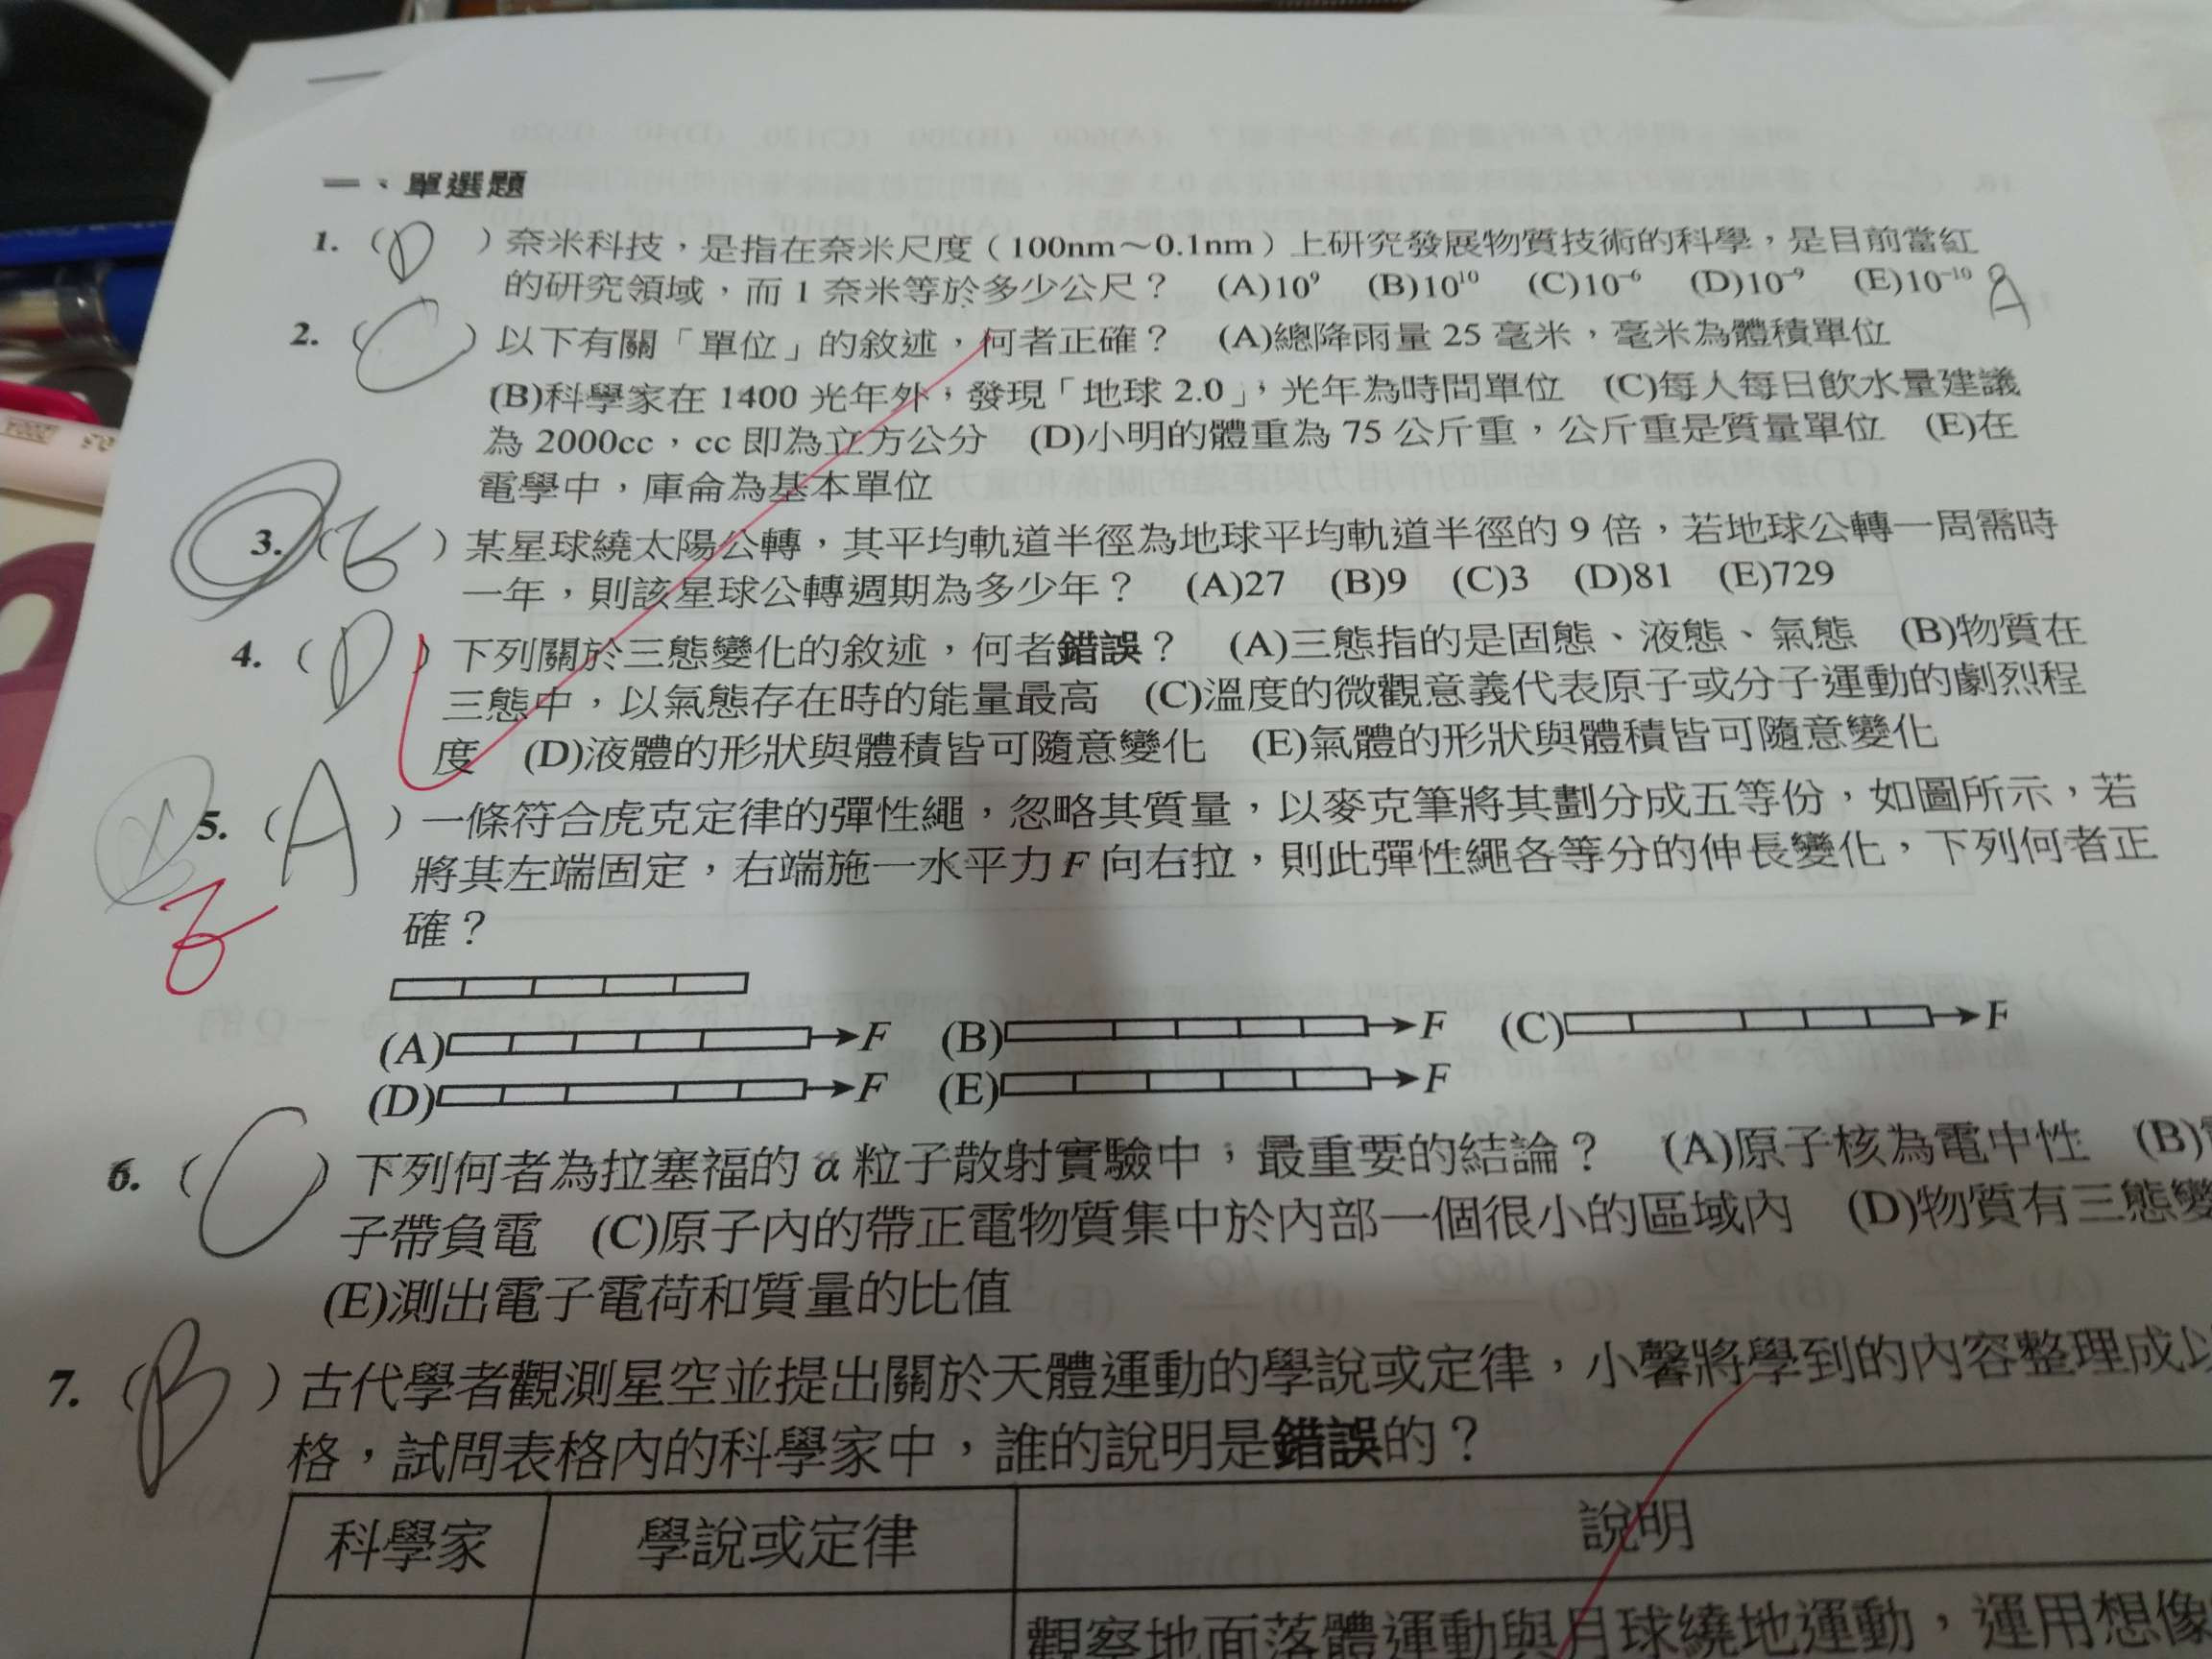 一、單選題
1. (D) 奈米科技，是指在奈米尺度（100nm～0.1nm）上研究發展物質技術的科學，是目前當紅
的研究領域，而 1 奈米等於多少公尺？ (A)10⁹ (B)10¹⁰ (C)10⁻⁶ (D)10⁻⁹ (E)10⁻¹⁰
2. (C) 以下有關「單位」的敘述，何者正確？ (A)總降雨量 25 毫米，毫米為體積單位
(B)科學家在 1400 光年外，發現「地球 2.0」，光年為時間單位 (C)每人每日飲水量建議
為 2000cc，cc 即為立方公分 (D)小明的體重為 75 公斤重，公斤重是質量單位 (E)在
電學中，庫侖為基本單位
3. ( ) 某星球繞太陽公轉，其平均軌道半徑為地球平均軌道半徑的 9 倍，若地球公轉一周需時
一年，則該星球公轉週期為多少年？ (A)27 (B)9 (C)3 (D)81 (E)729
4. (D) 下列關於三態變化的敘述，何者錯誤？ (A)三態指的是固態、液態、氣態 (B)物質在
三態中，以氣態存在時的能量最高 (C)溫度的微觀意義代表原子或分子運動的劇烈程
度 (D)液體的形狀與體積皆可隨意變化 (E)氣體的形狀與體積皆可隨意變化
5. (A) 一條符合虎克定律的彈性繩，忽略其質量，以麥克筆將其劃分成五等份，如圖所示，若
將其左端固定，右端施一水平力 F 向右拉，則此彈性繩各等分的伸長變化，下列何者正
確？
(A) F (B) F (C) F
(D) F (E) F
6. (C) 下列何者為拉塞福的 α 粒子散射實驗中，最重要的結論？ (A)原子核為電中性 (B)
子帶負電 (C)原子內的帶正電物質集中於內部一個很小的區域內 (D)物質有三態變
(E)測出電子電荷和質量的比值
7. (B) 古代學者觀測星空並提出關於天體運動的學說或定律，小馨將學到的內容整理成以
格，試問表格內的科學家中，誰的說明是錯誤的？
科學家 學說或定律 說明
觀察地面落體運動與月球繞地運動，運用想像